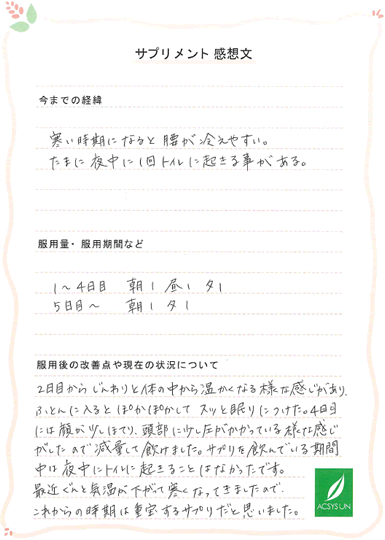 サプリメント 感想文
今までの経緯
寒い時期になると腰が冷えやすい。
たまに夜中に1回トイレに起きる事がある。
服用量・服用期間など
1～4日目 朝1 昼1 夕1
5日目～ 朝1 夕1
服用後の改善点や現在の状況について
2日目からじんわりと体の中から温かくなる様な感じがあり、
ふとんに入るとぽかぽかして スッと眠りにつけた。4日目
には顔が少しほてり、頭部に少し圧がかかっている様な感じ
がしたので減量して飲けました。サプリを飲んでいる期間
中は夜中にトイレに起きることはなかったです。
最近ぐんと気温が下がって寒くなってきましたので、
これからの時期は重宝するサプリだと思いました。
ACSYSUN